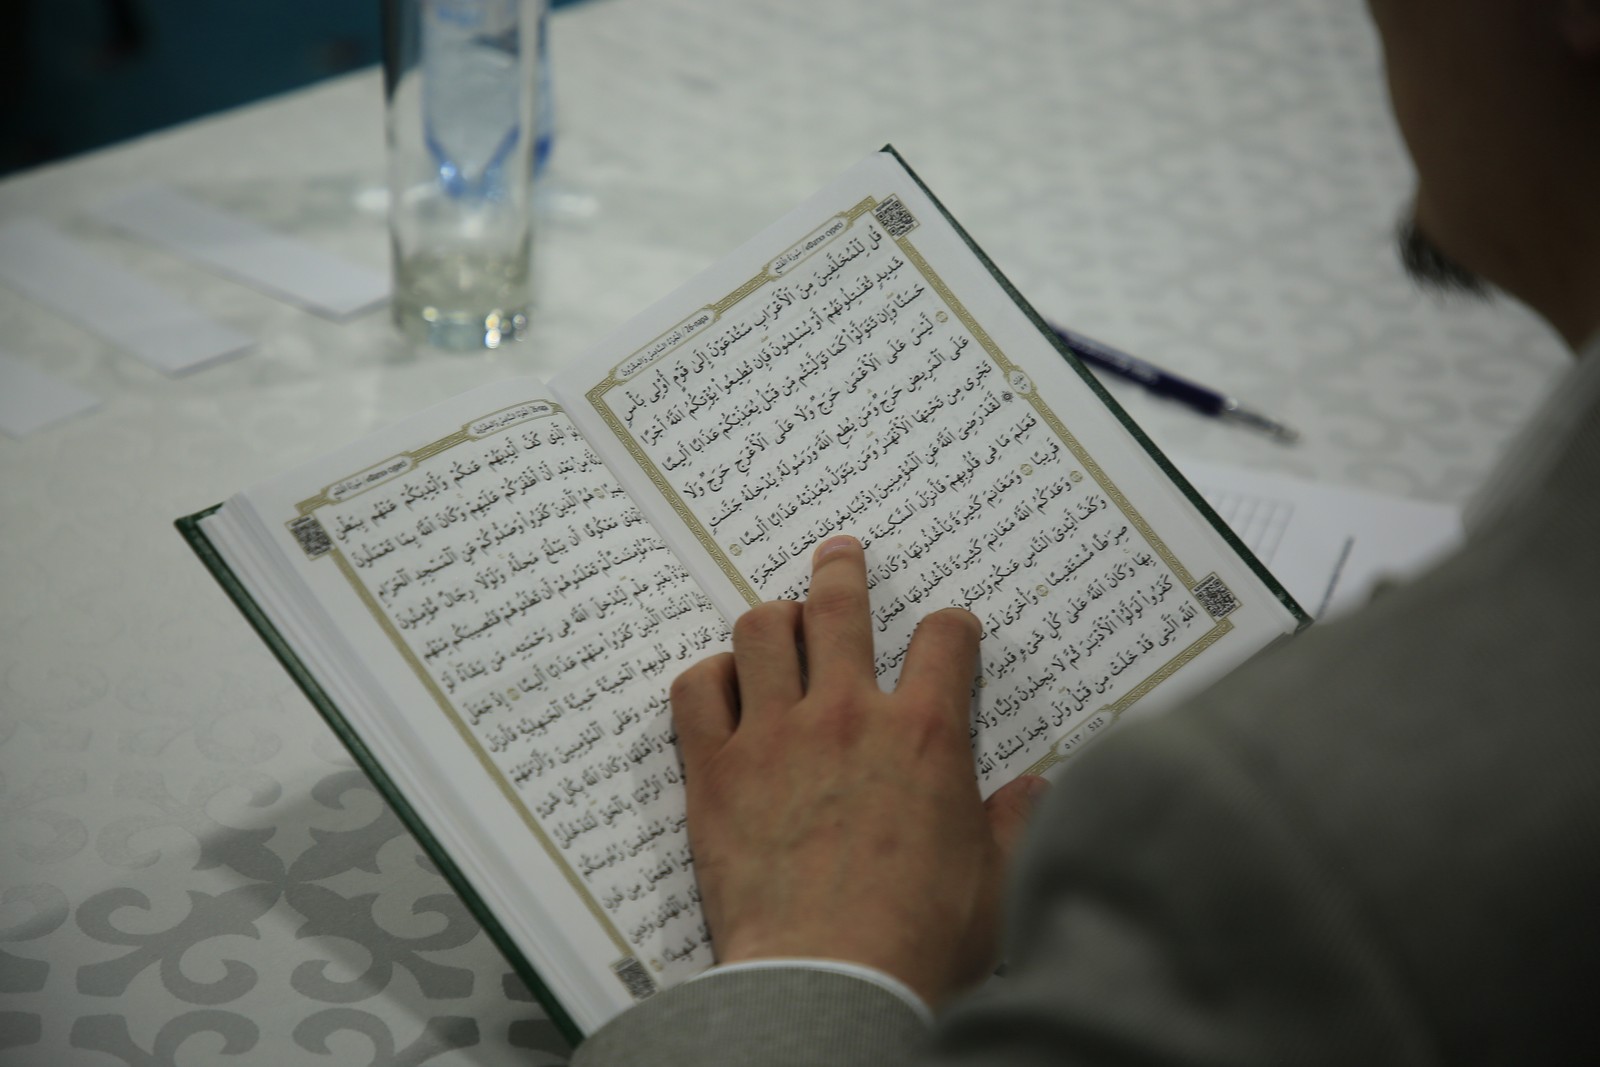 سُورَةُ الْفَتْحِ / «Фатх» сүресі
الجُزْءُ السَّادِسُ وَالعِشْرُونَ / 26-пара
قُل لِّلْمُخَلَّفِينَ مِنَ ٱلْأَعْرَابِ سَتُدْعَوْنَ إِلَىٰ قَوْمٍ أُو۟لِى بَأْسٍ
شَدِيدٍ تُقَـٰتِلُونَهُمْ أَوْ يُسْلِمُونَ فَإِن تُطِيعُوا۟ يُؤْتِكُمُ ٱللَّهُ أَجْرًا
حَسَنًا وَإِن تَتَوَلَّوْا۟ كَمَا تَوَلَّيْتُم مِّن قَبْلُ يُعَذِّبْكُمْ عَذَابًا أَلِيمًا
لَّيْسَ عَلَى ٱلْأَعْمَىٰ حَرَجٌ وَلَا عَلَى ٱلْأَعْرَجِ حَرَجٌ وَلَا
عَلَى ٱلْمَرِيضِ حَرَجٌ وَمَن يُطِعِ ٱللَّهَ وَرَسُولَهُۥ يُدْخِلْهُ جَنَّـٰتٍ
تَجْرِى مِن تَحْتِهَا ٱلْأَنْهَـٰرُ وَمَن يَتَوَلَّ يُعَذِّبْهُ عَذَابًا أَلِيمًا
لَّقَدْ رَضِىَ ٱللَّهُ عَنِ ٱلْمُؤْمِنِينَ إِذْ يُبَايِعُونَكَ تَحْتَ ٱلشَّجَرَةِ
فَعَلِمَ مَا فِى قُلُوبِهِمْ فَأَنزَلَ ٱلسَّكِينَةَ
قَرِيبًا وَمَغَانِمَ كَثِيرَةً يَأْخُذُونَهَا وَكَانَ ٱللَّهُ
وَعَدَكُمُ ٱللَّهُ مَغَانِمَ كَثِيرَةً تَأْخُذُونَهَا فَعَجَّلَ
وَكَفَّ أَيْدِىَ ٱلنَّاسِ عَنكُمْ وَلِتَكُونَ
صِرَٰطًا مُّسْتَقِيمًا وَأُخْرَىٰ لَمْ
بِهَا وَكَانَ ٱللَّهُ عَلَىٰ كُلِّ شَىْءٍ قَدِيرًا
كَفَرُوا۟ لَوَلَّوُا۟ ٱلْأَدْبَـٰرَ ثُمَّ لَا يَجِدُونَ وَلِيًّا وَلَا
ٱللَّهِ ٱلَّتِى قَدْ خَلَتْ مِن قَبْلُ وَلَن تَجِدَ لِسُنَّةِ ٱللَّهِ
٥١٣ / 513
الجُزْءُ السَّادِسُ وَالعِشْرُونَ / 26-пара
سُورَةُ الْفَتْحِ / «Фатх» сүресі
ٱلَّذِى كَفَّ أَيْدِيَهُمْ عَنكُمْ وَأَيْدِيَكُمْ عَنْهُم بِبَطْنِ
مِنۢ بَعْدِ أَنْ أَظْفَرَكُمْ عَلَيْهِمْ وَكَانَ ٱللَّهُ بِمَا تَعْمَلُونَ
هُمُ ٱلَّذِينَ كَفَرُوا۟ وَصَدُّوكُمْ عَنِ ٱلْمَسْجِدِ ٱلْحَرَامِ
مَعْكُوفًا أَن يَبْلُغَ مَحِلَّهُۥ وَلَوْلَا رِجَالٌ مُّؤْمِنُونَ
مُّؤْمِنَـٰتٌ لَّمْ تَعْلَمُوهُمْ أَن تَطَـُٔوهُمْ فَتُصِيبَكُم مِّنْهُم
بِغَيْرِ عِلْمٍ لِّيُدْخِلَ ٱللَّهُ فِى رَحْمَتِهِۦ مَن يَشَآءُ لَوْ
لَعَذَّبْنَا ٱلَّذِينَ كَفَرُوا۟ مِنْهُمْ عَذَابًا أَلِيمًا إِذْ جَعَلَ
كَفَرُوا۟ فِى قُلُوبِهِمُ ٱلْحَمِيَّةَ حَمِيَّةَ ٱلْجَـٰهِلِيَّةِ فَأَنزَلَ
رَسُولِهِۦ وَعَلَى ٱلْمُؤْمِنِينَ وَأَلْزَمَهُمْ
وَأَهْلَهَا وَكَانَ ٱللَّهُ بِكُلِّ شَىْءٍ
ٱلرُّءْيَا بِٱلْحَقِّ لَتَدْخُلُنَّ
مُحَلِّقِينَ رُءُوسَكُمْ
فَجَعَلَ مِن دُونِ
بِٱلْهُدَىٰ وَدِينِ
شَهِيدًا